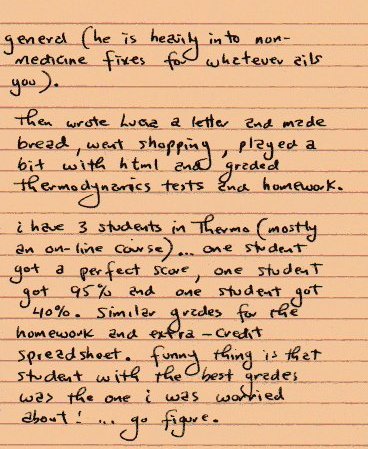 general (he is heavily into non-
medicine fixes for whatever ails
you).
Then wrote Luca a letter and made
bread, went shopping, played a
bit with html and graded
thermodynamics tests and homework.
i have 3 students in Thermo (mostly
an on-line course)... one student
got a perfect score, one student
got 95% and one student got
40%. Similar grades for the
homework and extra-credit
spreadsheet. funny thing is that
student with the best grades
was the one i was worried
about! ... go figure.